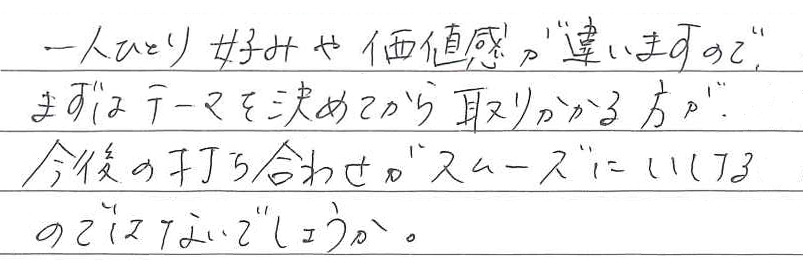 一人ひとり好みや価値感が違いますので、
まずはテーマを決めてから取りかかる方が、
今後の打ち合わせがスムーズにいける
のではないでしょうか。